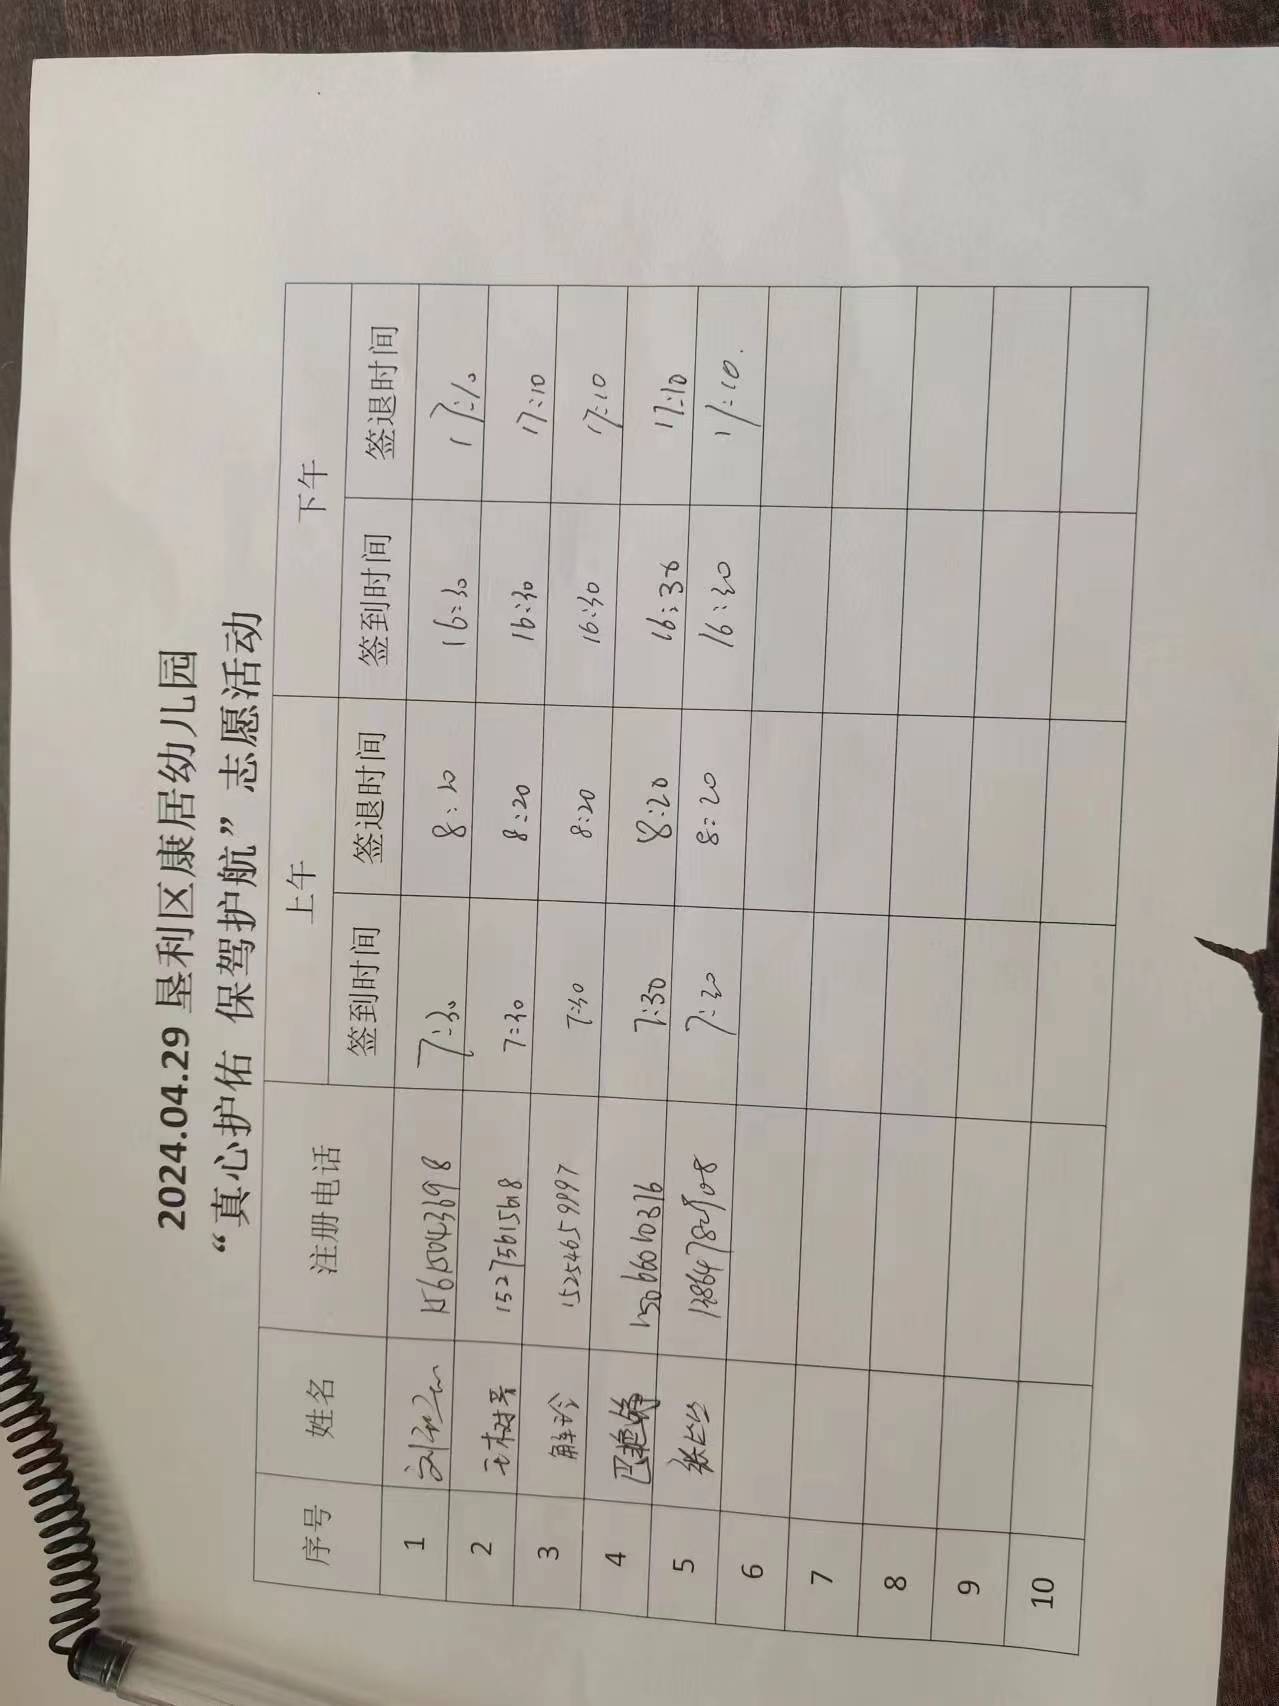 2024.04.29 垦利区康居幼儿园
“真心护佑 保驾护航”志愿活动
序号 姓名 注册电话 上午 下午
签到时间 签退时间 签到时间 签退时间
1 15615043698 7:30 8:20 16:30 17:10
2 15275615618 7:30 8:20 16:30 17:10
3 解玲 15254659997 7:30 8:20 16:30 17:10
4 15066010316 7:30 8:20 16:30 17:10
5 7:30 8:20 16:30 17:10.
6
7
8
9
10